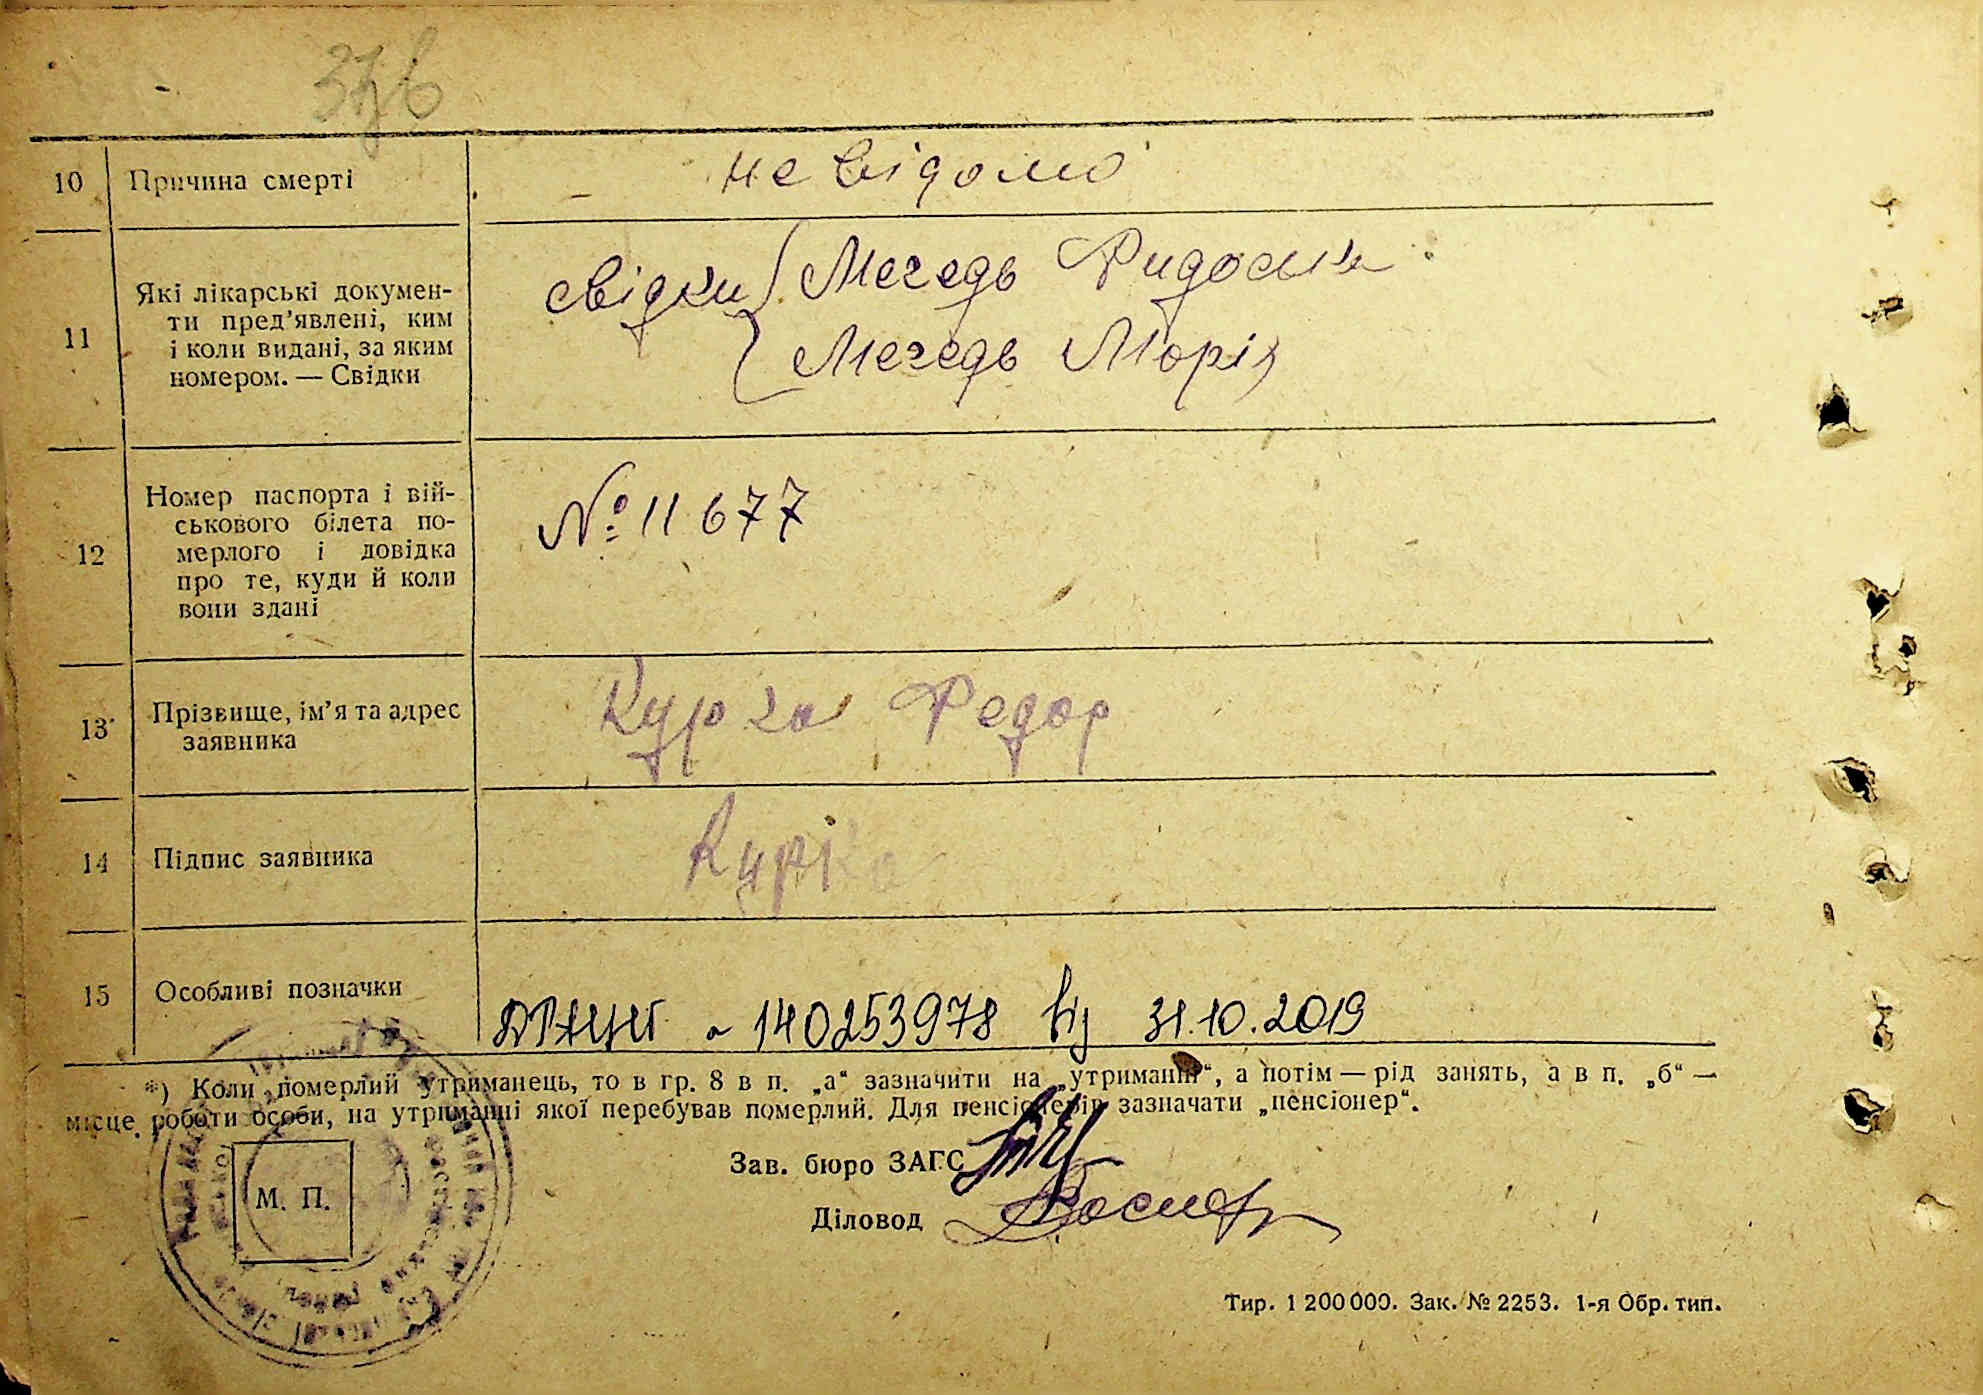 10 Причина смерті не відомо
11 Які лікарські докумен-
ти пред’явлені, ким
і коли видані, за яким
номером. — Свідки
свідки Мегедь
Мегедь Марія
12 Номер паспорта і вій-
ськового білета по-
мерлого і довідка
про те, куди й коли
вони здані
№ 11677
13 Прізвище, ім’я та адрес
заявника
Федор
14 Підпис заявника
15 Особливі позначки
ДРАЦСГ 140253978 від 31.10.2019
*) Коли померлий утриманець, то в гр. 8 в п. „а“ зазначити на „утриманні“, а потім — рід занять, а в п. „б“ —
місце роботи особи, на утриманні якої перебував померлий. Для пенсіонерів зазначати „пенсіонер“.
Зав. бюро ЗАГС
Діловод
М. П.
Тир. 1 200 000. Зак. № 2253. 1-я Обр. тип.